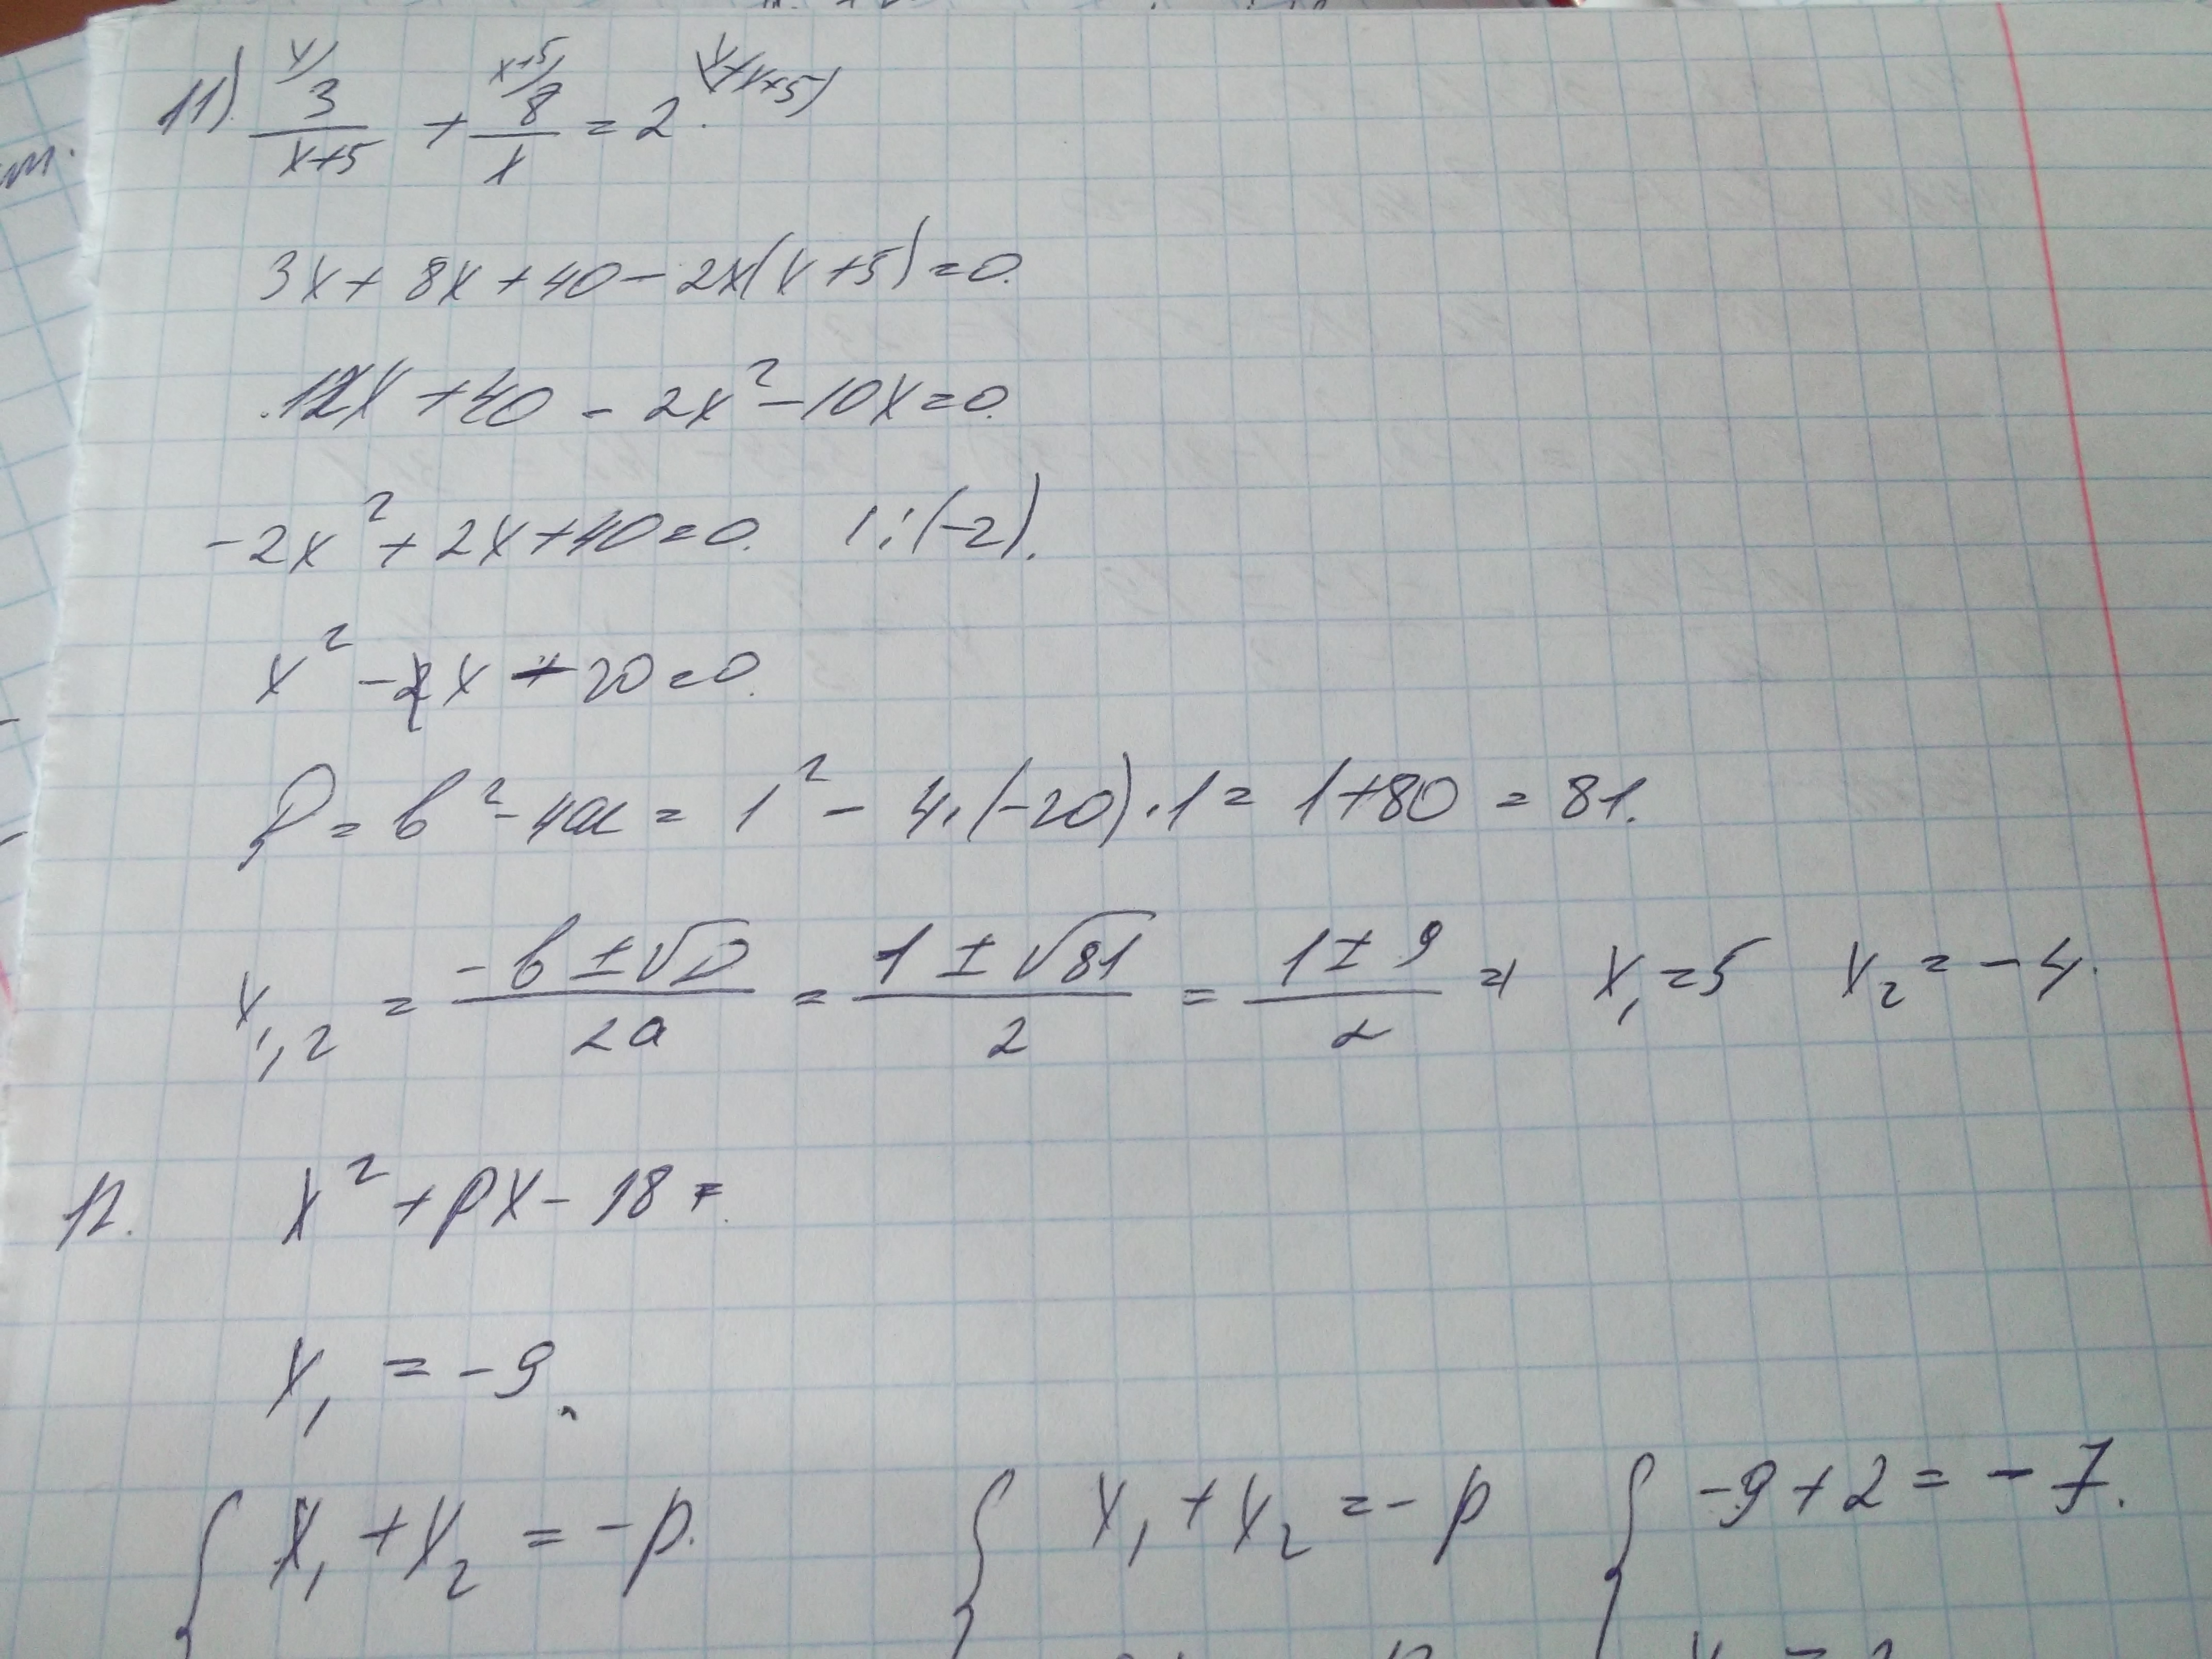 11) x/ 3/(x+5) + x+5/ 8/x = 2. (x(x+5)
3x + 8x + 40 - 2x(x+5) = 0.
12x + 40 - 2x² - 10x = 0.
-2x² + 2x + 40 = 0. | :(-2).
x² - x - 20 = 0.
D = b² - 4ac = 1² - 4·(-20)·1 = 1+80 = 81.
x₁,₂ = (-b ± √D)/2a = (1 ± √81)/2 = (1 ± 9)/2 => x₁ = 5 x₂ = -4.
12. x² + px - 18 =
x₁ = -9.
{ x₁ + x₂ = -p. { x₁ + x₂ = -p { -9 + 2 = -7.